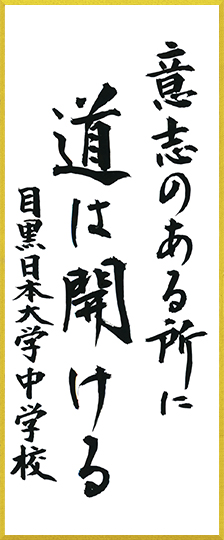 意志のある所に
道は開ける
目黒日本大学中学校